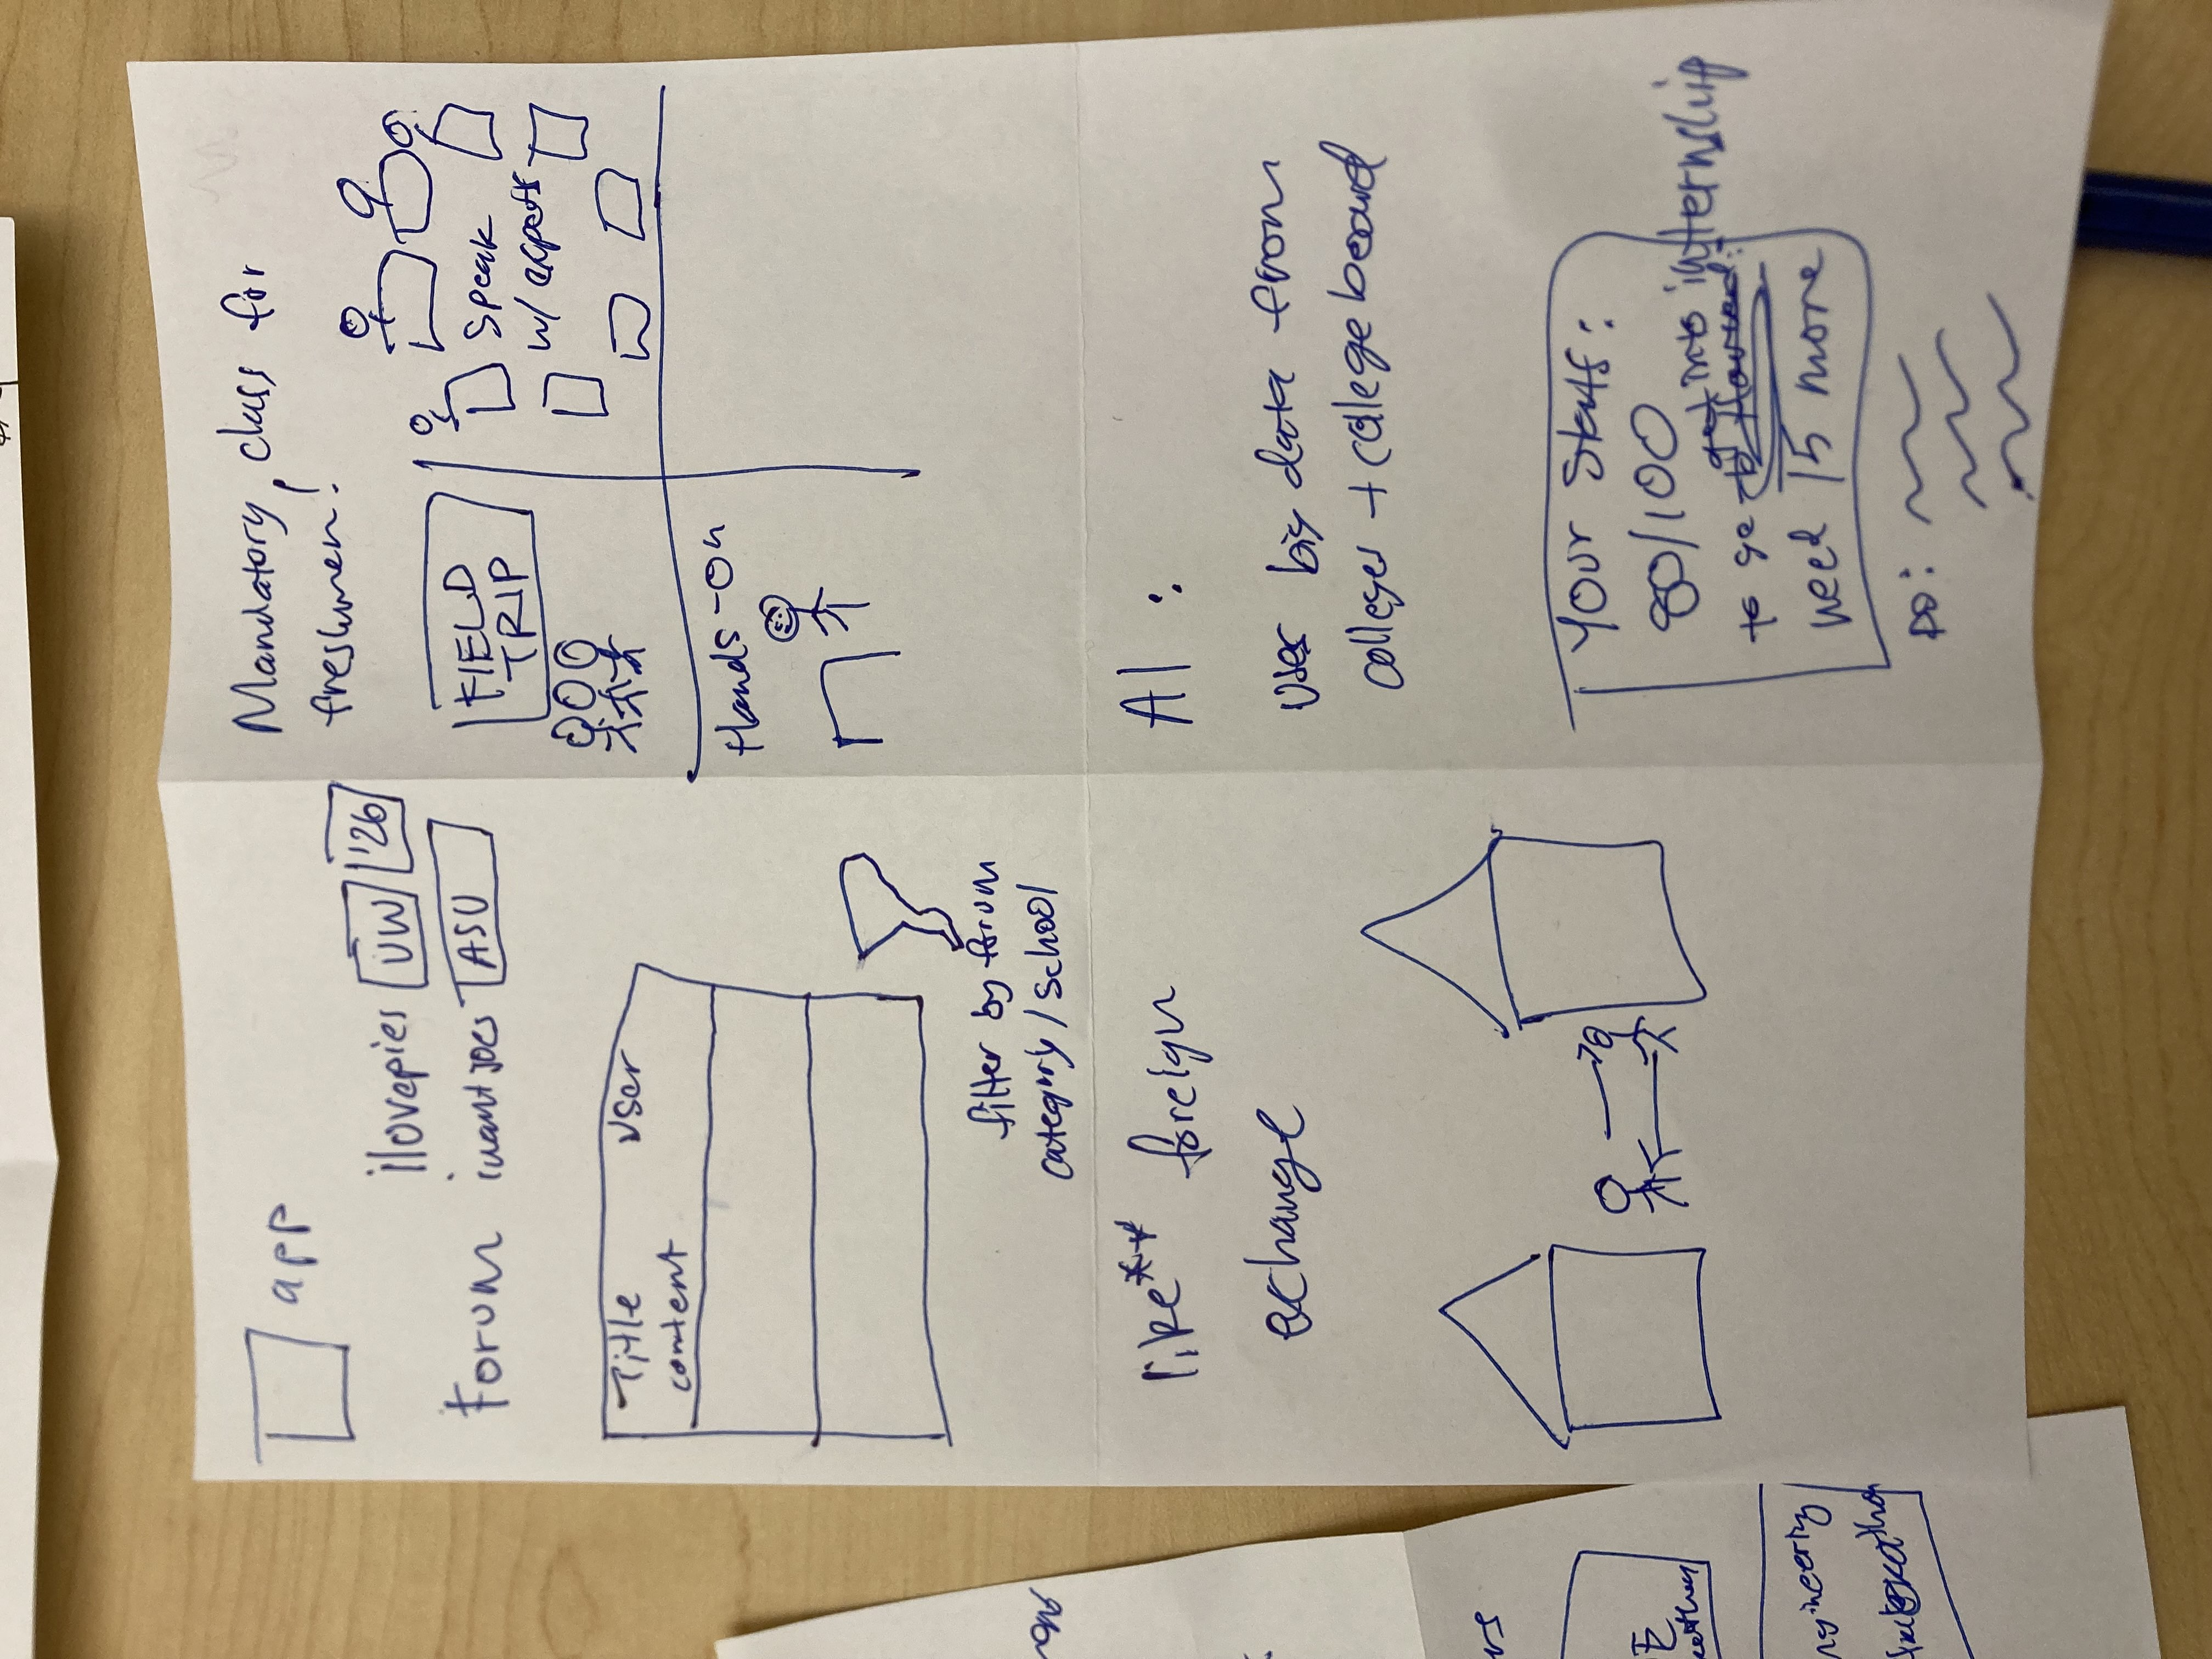 app
ilovepies UW '26
Forum iwantjoes ASU
Title User
content
filter by forum
category / school
Mandatory class for
freshmen!
FIELD
TRIP
Speak
w/ experts
Hands-On
like** foreign
exchange
AI:
uses big data from
colleges + collegeboard
Your stats:
80/100
to get into internship
need 15 more
DO: